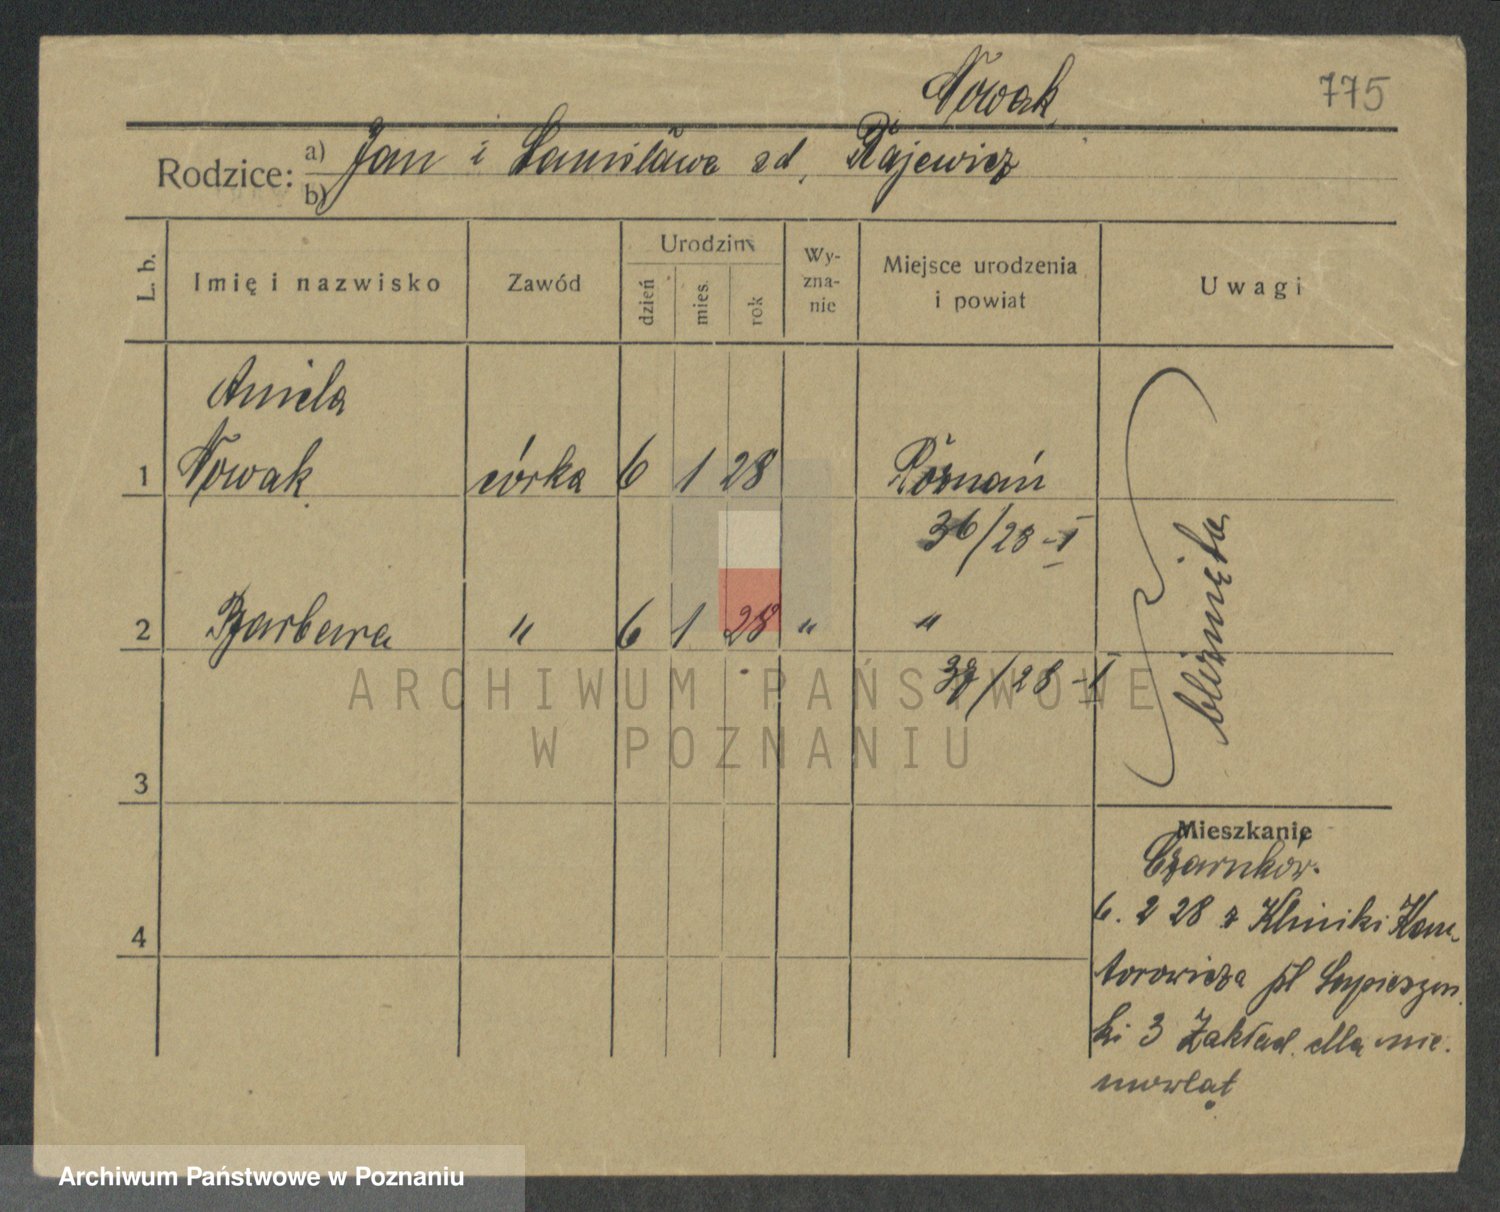 Nowak
775
Rodzice: a) Jan i Stanisława zd. Rajewicz
b)
L. b.
Imię i nazwisko
Zawód
Urodzin
dzień
mies.
rok
Wy-
zna-
nie
Miejsce urodzenia
i powiat
Uwagi
Aniela
1 Nowak córka 6 1 28 Poznań
36/28-I
2 Barbara " 6 1 28 " "
37/28-I
bliźnięta
3
4
Mieszkanie
Czarnków.
6. 2 28 z Kliniki Kan-
torowicza pl Sapieżyń
ki 3 Zakład dla nie-
mowląt
ARCHIWUM PAŃSTWOWE
W POZNANIU
Archiwum Państwowe w Poznaniu